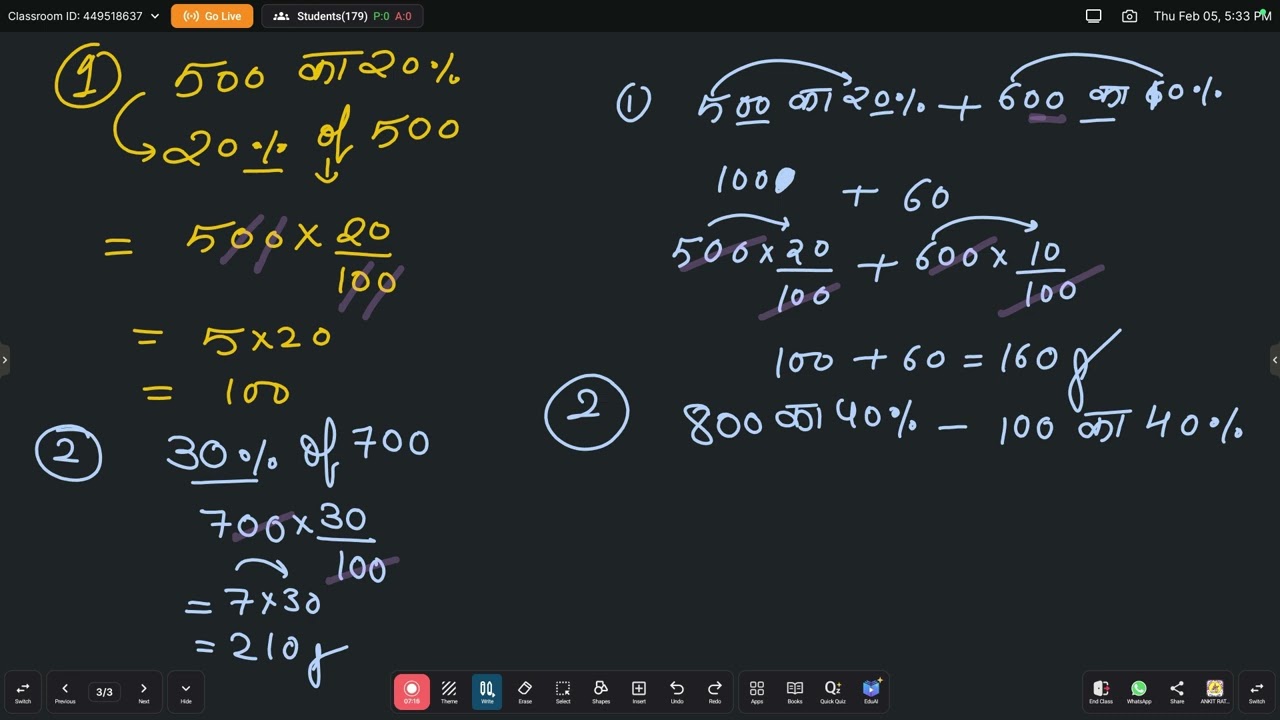 Classroom ID: 449518637 Go Live Students(179) P:0 A:0 Thu Feb 05, 5:33 PM
① 500 का 20%
20% of 500
= 500 × 20/100
= 5 × 20
= 100
② 30% of 700
700 × 30/100
= 7 × 30
= 210
① 500 का 20% + 600 का 10%
100 + 60
500 × 20/100 + 600 × 10/100
100 + 60 = 160
② 800 का 40% − 100 का 40%
Switch Previous 3/3 Next Hide 07:16 Theme Write Erase Select Shapes Insert Undo Redo Apps Books Quick Quiz EduAI End Class WhatsApp Share ANKIT RAT... Switch